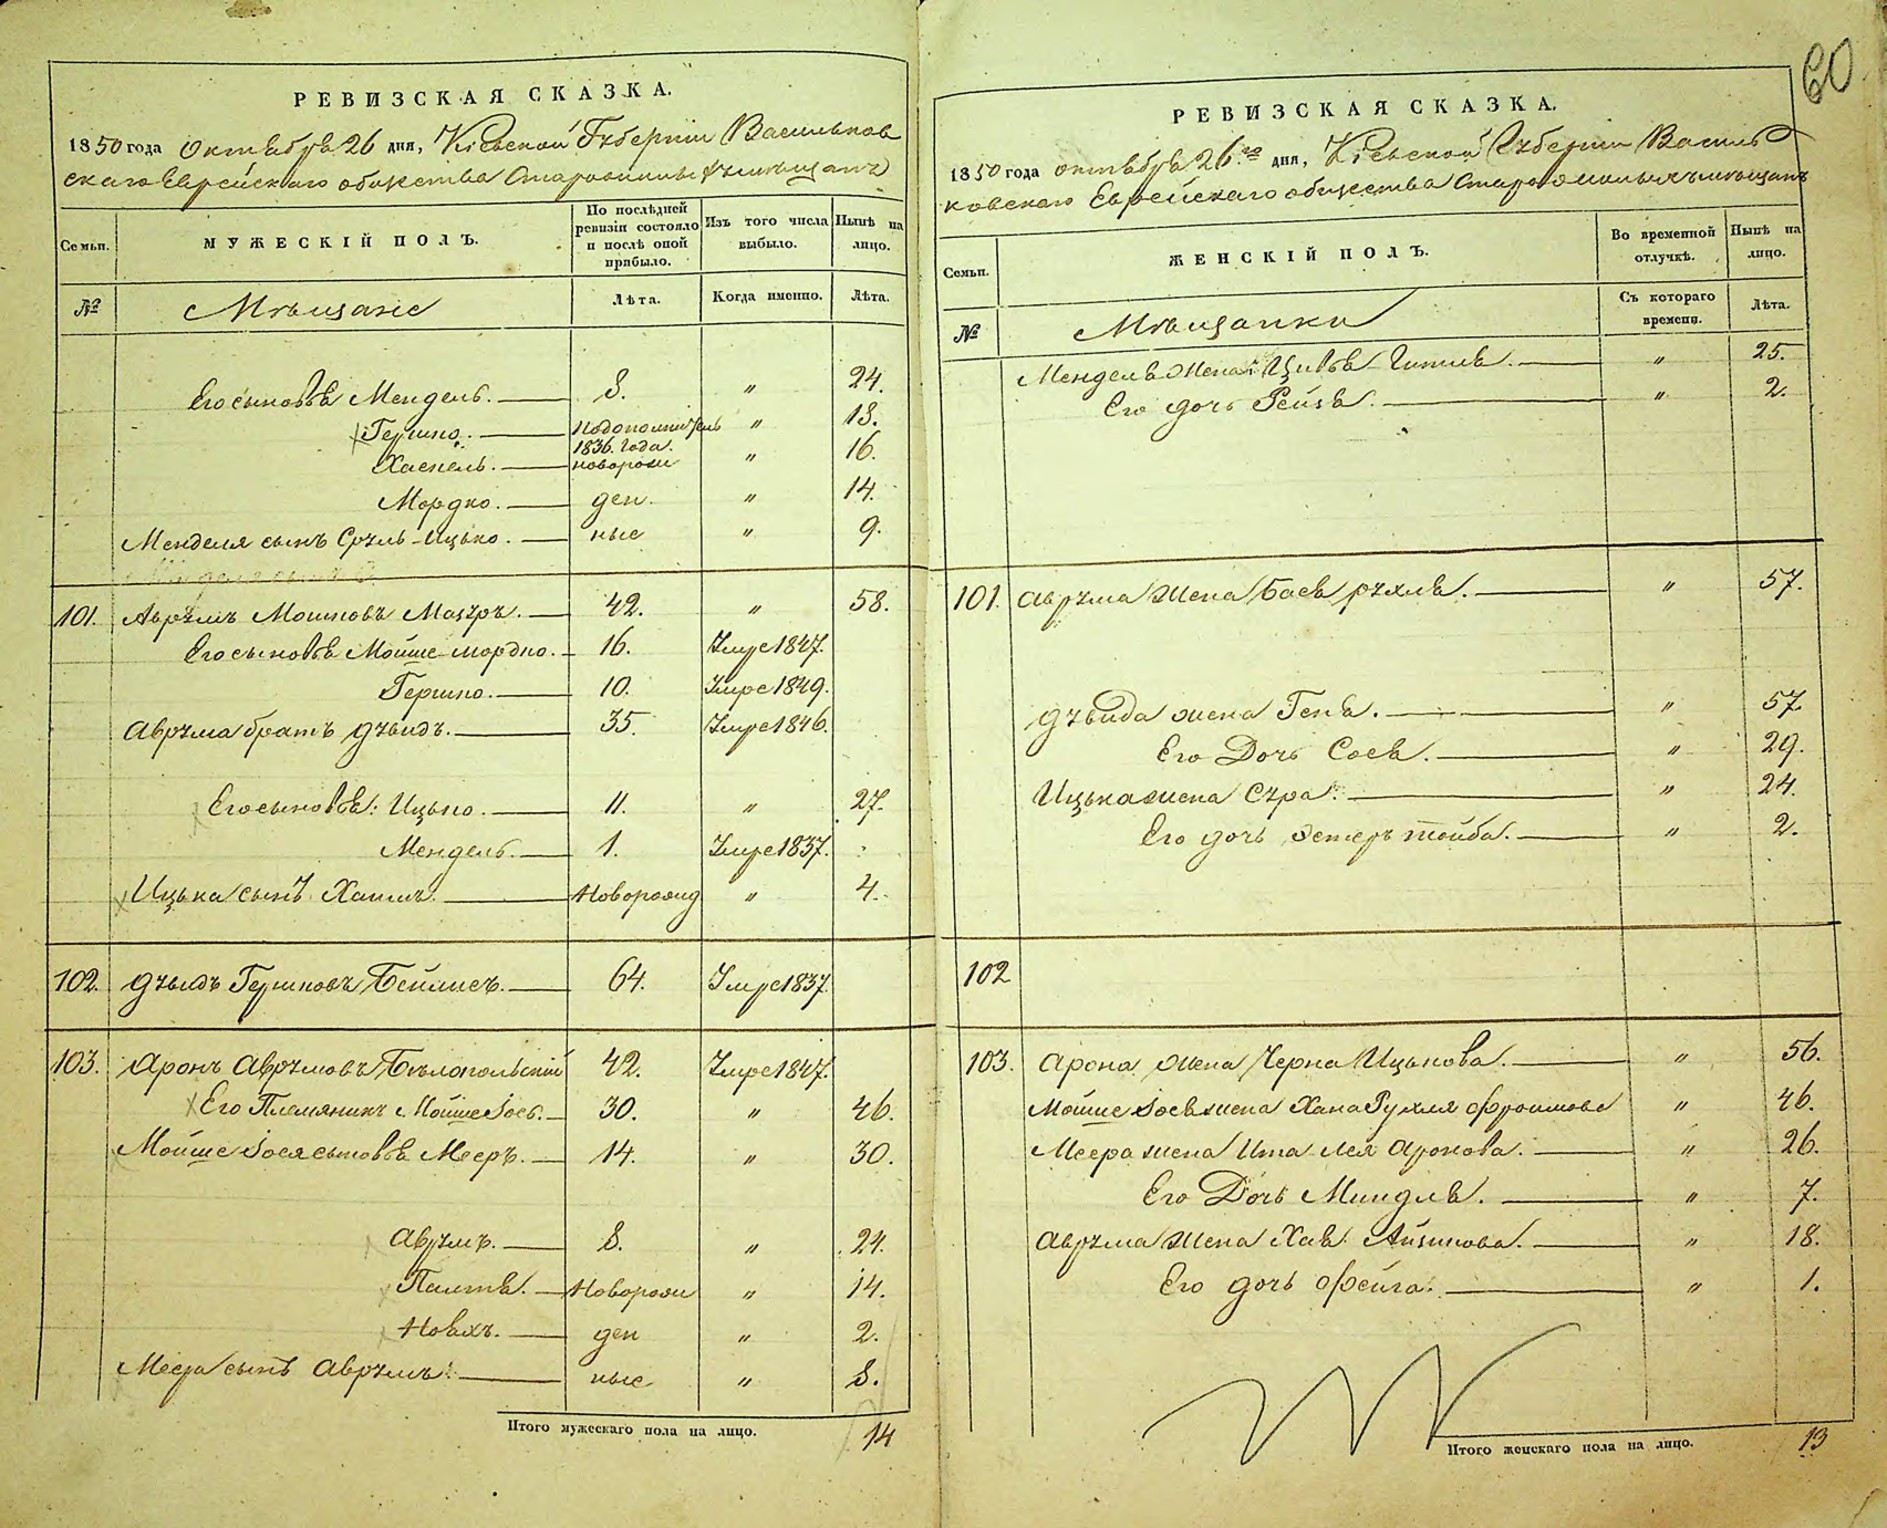 РЕВИЗСКАЯ СКАЗКА.
1850 года Октября 26 дня, Кіевской Губерніи Васильков
скаго Еврейскаго общества Старозаконныхъ мѣщанъ
Семьи.
МУЖЕСКІЙ ПОЛЪ.
По послѣдней ревизіи состояло и послѣ оной прибыло.
Изъ того числа выбыло.
Нынѣ на лицо.
№
Мѣщане
Лѣта.
Когда именно.
Лѣта.
Его сыновья Мендель. 8. " 24.
Гершко. Подополнитель 1836. года. " 18.
Хаскель. новорож " 16.
Мордко. ден " 14.
Менделя сынъ Сруль-Ицько. ные " 9.
101. Аврумъ Мошковъ Мазуръ. 42. " 58.
Его сыновья Мойше мордко. 16. Умре 1847.
Гершко. 10. Умре 1849.
Аврума братъ Дувидъ. 35. Умре 1846.
Его сыновья: Ицько. 11. " 27.
Мендель. 1. Умре 1837.
Ицька сынъ Хаимъ. Новорожд " 4.
102. Дувидъ Гершковъ Бейлисъ. 64. Умре 1837.
103. Аронъ Аврумовъ Бѣлопольскій 42. Умре 1847.
Его Племянникъ Мойше Іось. 30. " 46.
Мойше Іося сыновья Мееръ. 14. " 30.
Аврумъ. 8. " 24.
Палтѣ. Новорож " 14.
Новхъ. ден " 2.
Меера сынъ Аврумъ. ные " 8.
Итого мужескаго пола на лицо. 14
60
РЕВИЗСКАЯ СКАЗКА.
1850 года октября 26го дня, Кіевской Губерніи Василь
ковскаго Еврейскаго общества Старозаконныхъ мѣщанъ
Семьи.
ЖЕНСКІЙ ПОЛЪ.
Во временной отлучкѣ.
Нынѣ на лицо.
№
Мѣщанки
Съ котораго времени.
Лѣта.
Менделя жена Цивья Гитля. " 25.
Его дочь Рейзя. " 2.
101. Аврума жена Бася рухля. " 57.
Дувида жена Геня. " 57.
Его Дочь Сося. " 29.
Ицька жена Сура. " 24.
Его дочь Эстеръ тойба. " 2.
102
103. Арона жена Черна Ицькова. " 56.
Мойше Іося жена Хана Рухля Фроимова " 46.
Меера жена Ита Лея Аронова. " 26.
Его Дочь Миндля. " 7.
Аврума жена Хая Айзикова. " 18.
Его дочь Фейга. " 1.
Итого женскаго пола на лицо. 13